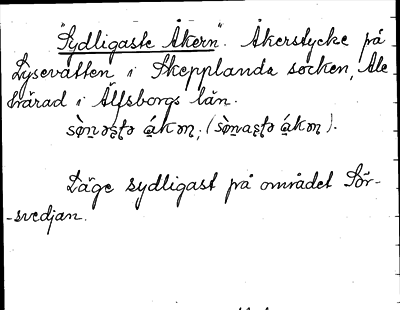 "Sydligaste Åkern". Åkerstycke på
Lysevatten i Skepplanda socken, Ale
härad i Älfsborgs län.
Läge sydligast på området Sör-
-svedjan.